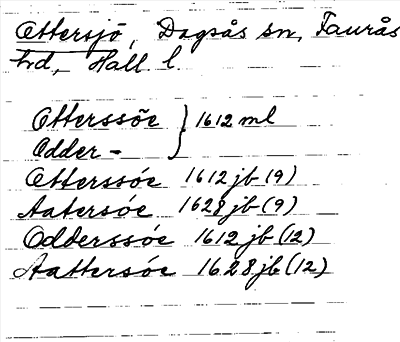 Ottersjö, Dagsås sn, Faurås
hd, Hall. l.
Otterssöe } 1612 ml
Odder -
Otterssóe 1612 jb (9)
Aatersóe 1628 jb (9)
Odderssóe 1612 jb (12)
Aattersóe 1628 jb (12)